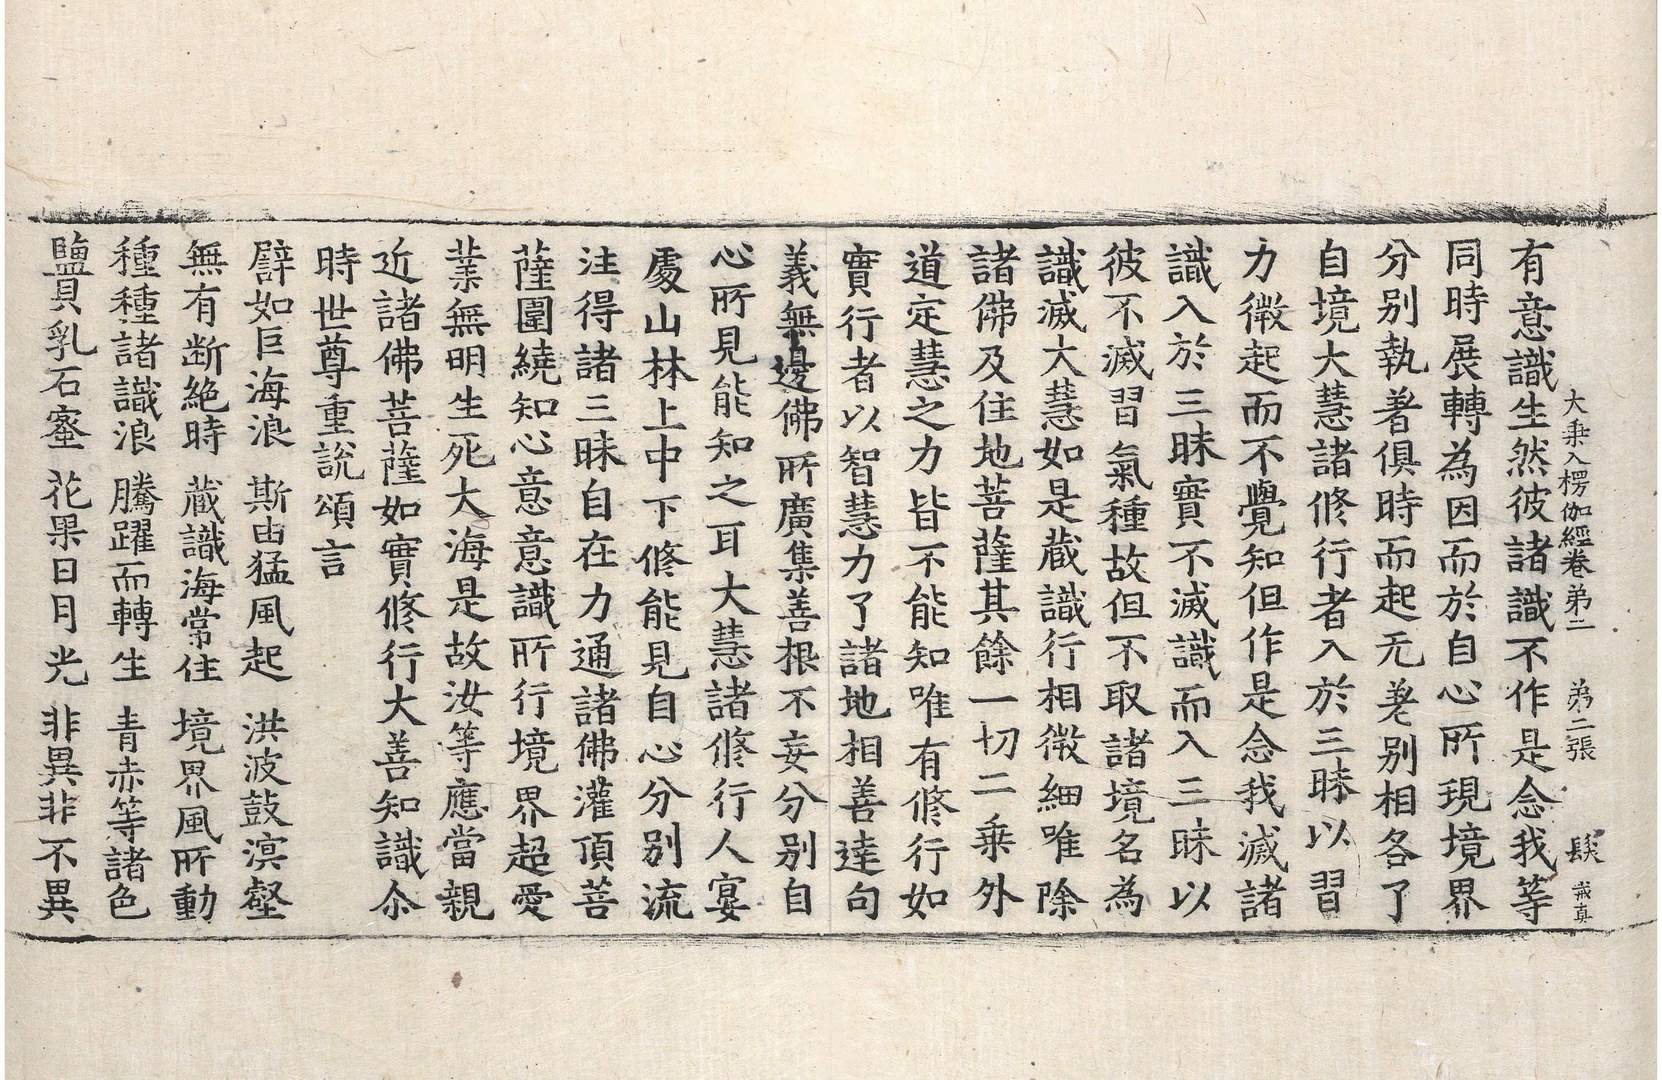 大乗入楞伽經卷第二 第二張 髮 戒真
有意識生然彼諸識不作是念我等
同時展轉為因而於自心所現境界
分別執著俱時而起无差別相各了
自境大慧諸修行者入於三昧以習
力微起而不覺知但作是念我滅諸
識入於三昧實不滅識而入三昧以
彼不滅習氣種故但不取諸境名為
識滅大慧如是蔵識行相微細唯除
諸佛及住地菩薩其餘一切二乗外
道定慧之力皆不能知唯有修行如
實行者以智慧力了諸地相善達句
義無邊佛所廣集善根不妄分別自
心所見能知之耳大慧諸修行人宴
處山林上中下修能見自心分別流
注得諸三昧自在力通諸佛灌頂菩
薩圍繞知心意意識所行境界超愛
業無明生死大海是故汝等應當親
近諸佛菩薩如實修行大善知識尒
時世尊重說頌言
譬如巨海浪 斯由猛風起 洪波鼓溟壑
無有断絶時 蔵識海常住 境界風所動
種種諸識浪 騰躍而轉生 青赤等諸色
鹽貝乳石蜜 花果日月光 非異非不異